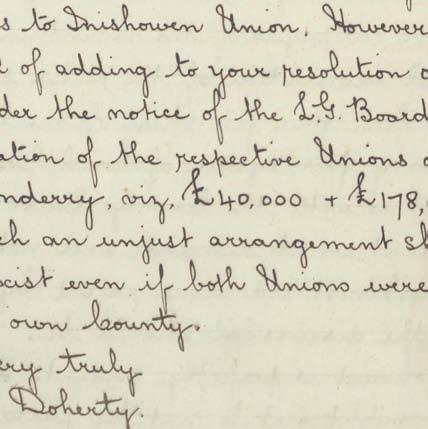 s to Inishowen Union. However
of adding to your resolution
der the notice of the L.G. Board
ation of the respective Unions
nderry, viz, £40,000 + £178,
ch an unjust arrangement sh
exist even if both Unions were
own County.
ery truly
Doherty.